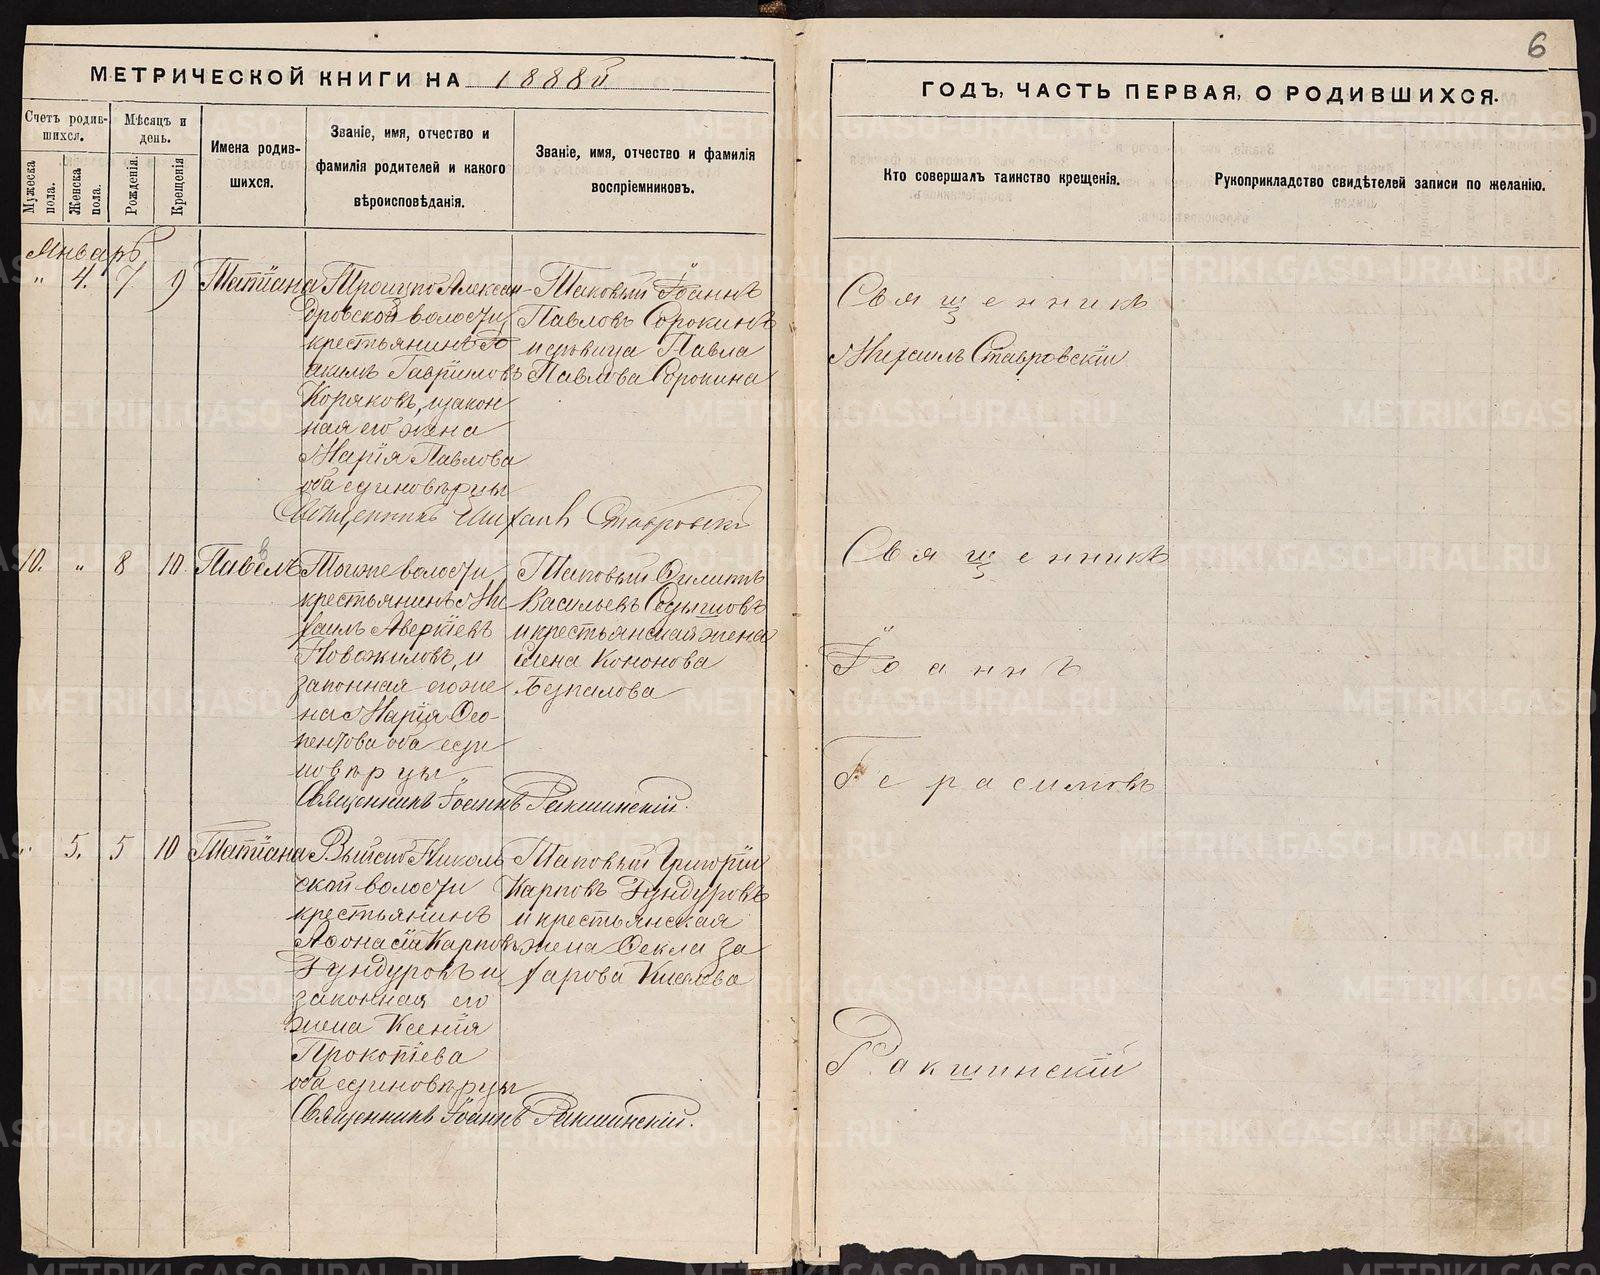 6
МЕТРИЧЕСКОЙ КНИГИ НА 1888й
ГОДЪ, ЧАСТЬ ПЕРВАЯ, О РОДИВШИХСЯ.
Счетъ родив-
шихся.
Мужеска
пола.
Женска
пола.
Мѣсяцъ и
день.
Рожденія.
Крещенія
Имена родив-
шихся.
Званіе, имя, отчество и
фамилія родителей и какого
вѣроисповѣданія.
Званіе, имя, отчество и фамилія
воспріемниковъ.
Кто совершалъ таинство крещенія.
Рукоприкладство свидѣтелей записи по желанію.
Январь
" 4. 7 9 Татіана
Троицко Алексан-
дровской волости,
крестьянинъ Іо
акимъ Гавріиловъ
Коряковъ, и закон
ная его жена
Марія Павлова
оба единовѣрцы
Таковый Іоаннъ
Павловъ Сорокинъ
и дѣвица Павла
Павлова Сорокина
Священникъ
Михаилъ Ставровскій
Священникъ Михаилъ Ставровскій
10. " 8 10 Павелъ
Тойже волости
крестьянинъ Ми
хаилъ Аверкіевъ
Новожиловъ, и
законная его же
на Марія Ѳео-
пентова оба еди
новѣрцы
Таковый Филиппъ
Васильевъ Седышовъ
и крестьянская жена
Елена Кононова
Безпалова
Священникъ
Іоаннъ
Герасимовъ
Священникъ Іоаннъ Ракшинскій.
" 5. 5 10 Татіана
Выйско Николь
ской волости
крестьянинъ
Аѳонасій Карповъ
Гундуровъ и
законная его
жена Ксенія
Прокопіева
оба единовѣрцы
Таковый Григорій
Карповъ Гундуровъ
и крестьянская
жена Ѳекла За
харова Киселева
Ракшинскій
Священникъ Іоаннъ Ракшинскій.
METRIKI.GASO-URAL.RU